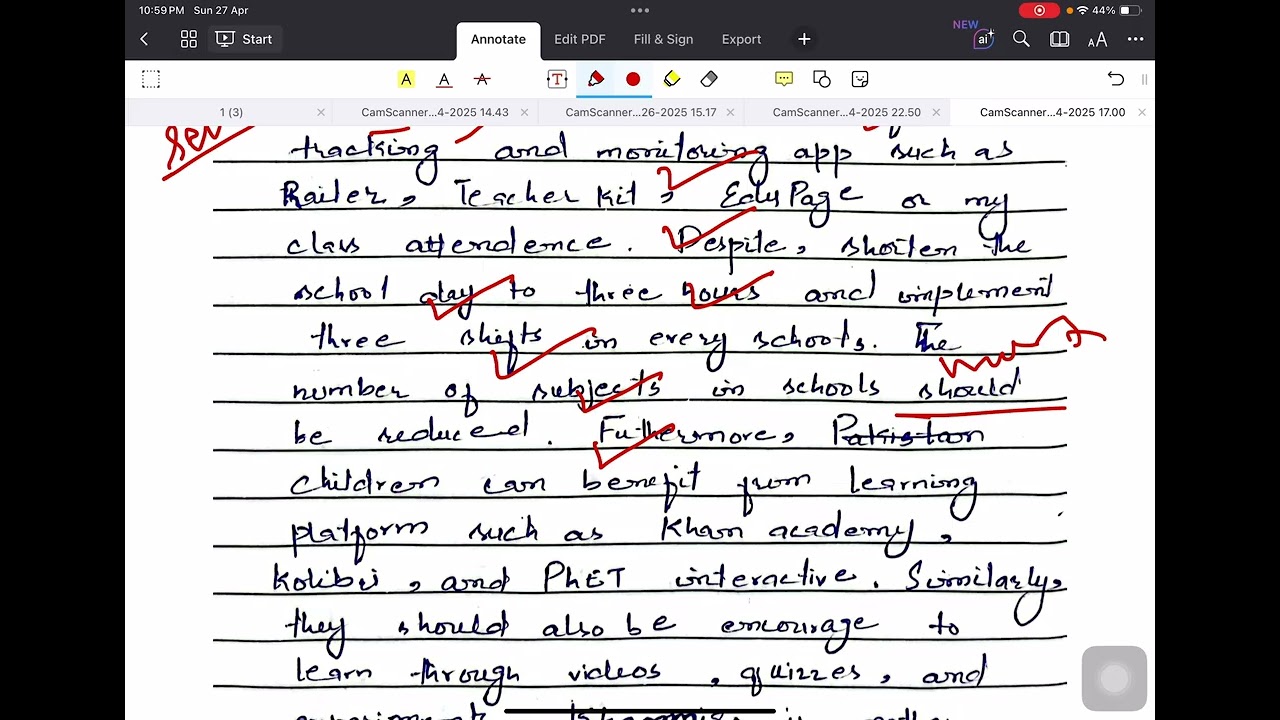 10:59 PM Sun 27 Apr
44%
Start
Annotate
Edit PDF
Fill & Sign
Export
NEW
ai
1 (3)
CamScanner...4-2025 14.43
CamScanner...26-2025 15.17
CamScanner...4-2025 22.50
CamScanner...4-2025 17.00
tracking and monitoring app such as
Raiter, Teacher kit, EduPage or my
class attendence. Despite, shorten the
school day to three hours and implement
three shifts in every schools. The
number of subjects in schools should
be reduced. Futhermore, Pakistan
children can benefit from learning
platform such as Khan academy,
Kolibri, and PhET interactive. Similarly,
they should also be encourage to
learn through videos, quizzes, and